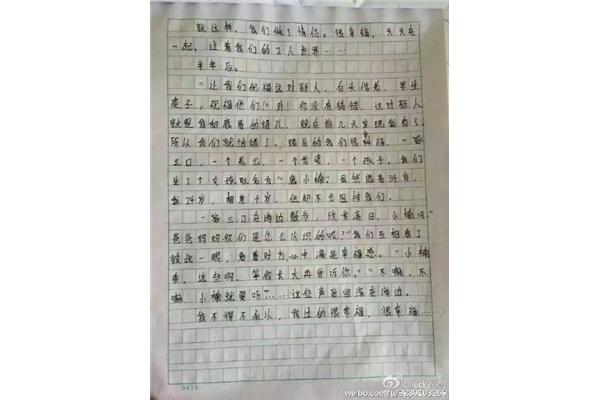 就这样，我们做了情侣。很幸福，天天在
一起，过着我们的2人世界……
半年后。
"让我们祝福这对新人，白头偕老，早生
贵子，祝福他们！"对！你没有猜错，这对新人
就是我和鹿晗的婚礼，就在前几天发现怀有了，
所以我们就结婚了。婚后的我们很幸福，一家
三口，一个老公，一个老婆，一个孩子，我们
生了个女孩取名为"鹿小楠"虽然鹿晗34岁，
我24岁，相差十岁，但却不会阻挡我们。
一家三口在海边散步，欣赏落日，小楠问"
爸爸妈妈你们是怎么认识的呢？"我们互相看了
彼此一眼，看着对方心中满是幸福感。"小楠
乖，这些啊，等你长大再告诉你。""不嘛，不
嘛，小楠就要听"……这些声音回荡在海边。
我不得不承认，我过的很幸福，很幸福……
0436
weibo.com/u/5289103265